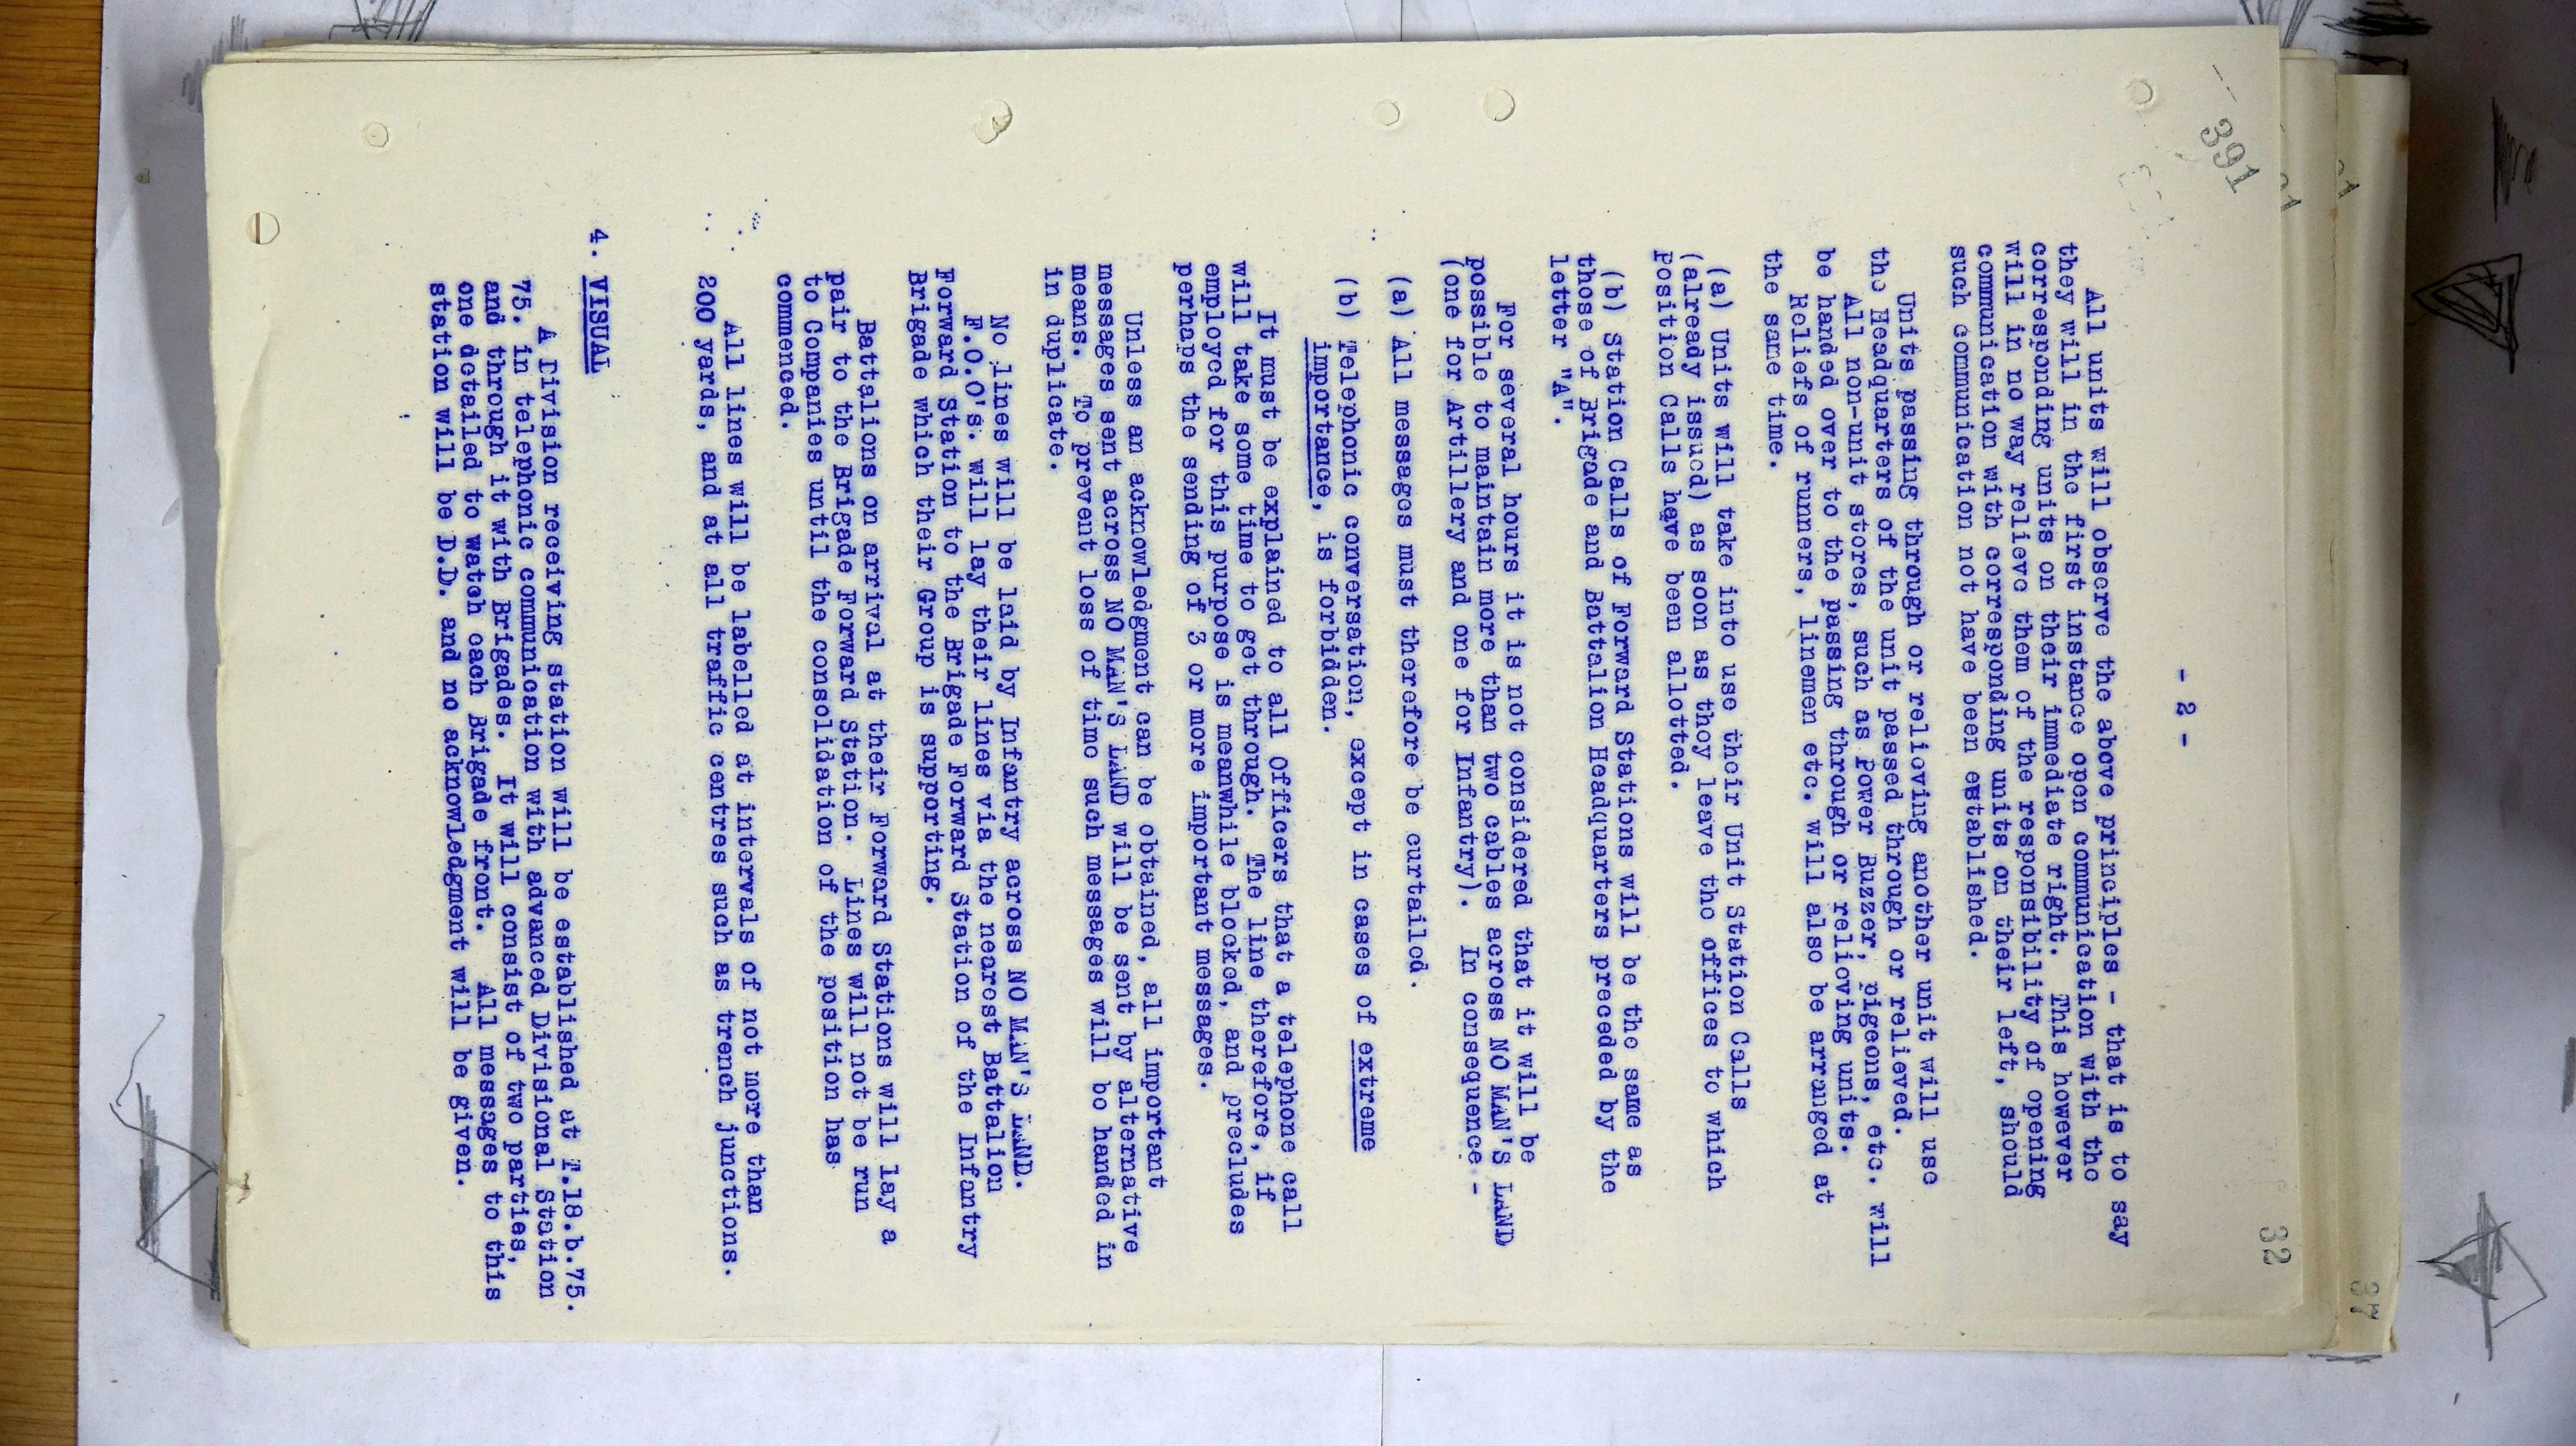 391
32
37
- 2 -
All units will observe the above principles - that is to say
they will in the first instance open communication with the
corresponding units on their immediate right. This however
will in no way relieve them of the responsibility of opening
communication with corresponding units on their left, should
such communication not have been established.
Units passing through or relieving another unit will use
the Headquarters of the unit passed through or relieved.
All non-unit stores, such as Power Buzzer, pigeons, etc. will
be handed over to the passing through or relieving units.
Reliefs of runners, linemen etc. will also be arranged at
the same time.
(a) Units will take into use their Unit Station Calls
(already issued) as soon as they leave the offices to which
Position Calls have been allotted.
(b) Station Calls of Forward Stations will be the same as
those of Brigade and Battalion Headquarters preceded by the
letter "A".
For several hours it is not considered that it will be
possible to maintain more than two cables across NO MAN'S LAND
(one for Artillery and one for Infantry). In consequence -
(a) All messages must therefore be curtailed.
(b) Telephonic conversation, except in cases of extreme
importance, is forbidden.
It must be explained to all Officers that a telephone call
will take some time to get through. The line therefore, if
employed for this purpose is meanwhile blocked, and precludes
perhaps the sending of 3 or more important messages.
Unless an acknowledgment can be obtained, all important
messages sent across NO MAN'S LAND will be sent by alternative
means. To prevent loss of time such messages will be handed in
in duplicate.
No lines will be laid by Infantry across NO MAN'S LAND.
F.O.O's. will lay their lines via the nearest Battalion
Forward Station to the Brigade Forward Station of the Infantry
Brigade which their Group is supporting.
Battalions on arrival at their Forward Stations will lay a
pair to the Brigade Forward Station. Lines will not be run
to Companies until the consolidation of the position has
commenced.
All lines will be labelled at intervals of not more than
200 yards, and at all traffic centres such as trench junctions.
4. VISUAL
A Division receiving station will be established at T.18.b.75.
75. in telephonic communication with advanced Divisional Station
and through it with Brigades. It will consist of two parties,
one detailed to watch each Brigade front. All messages to this
station will be D.D. and no acknowledgment will be given.